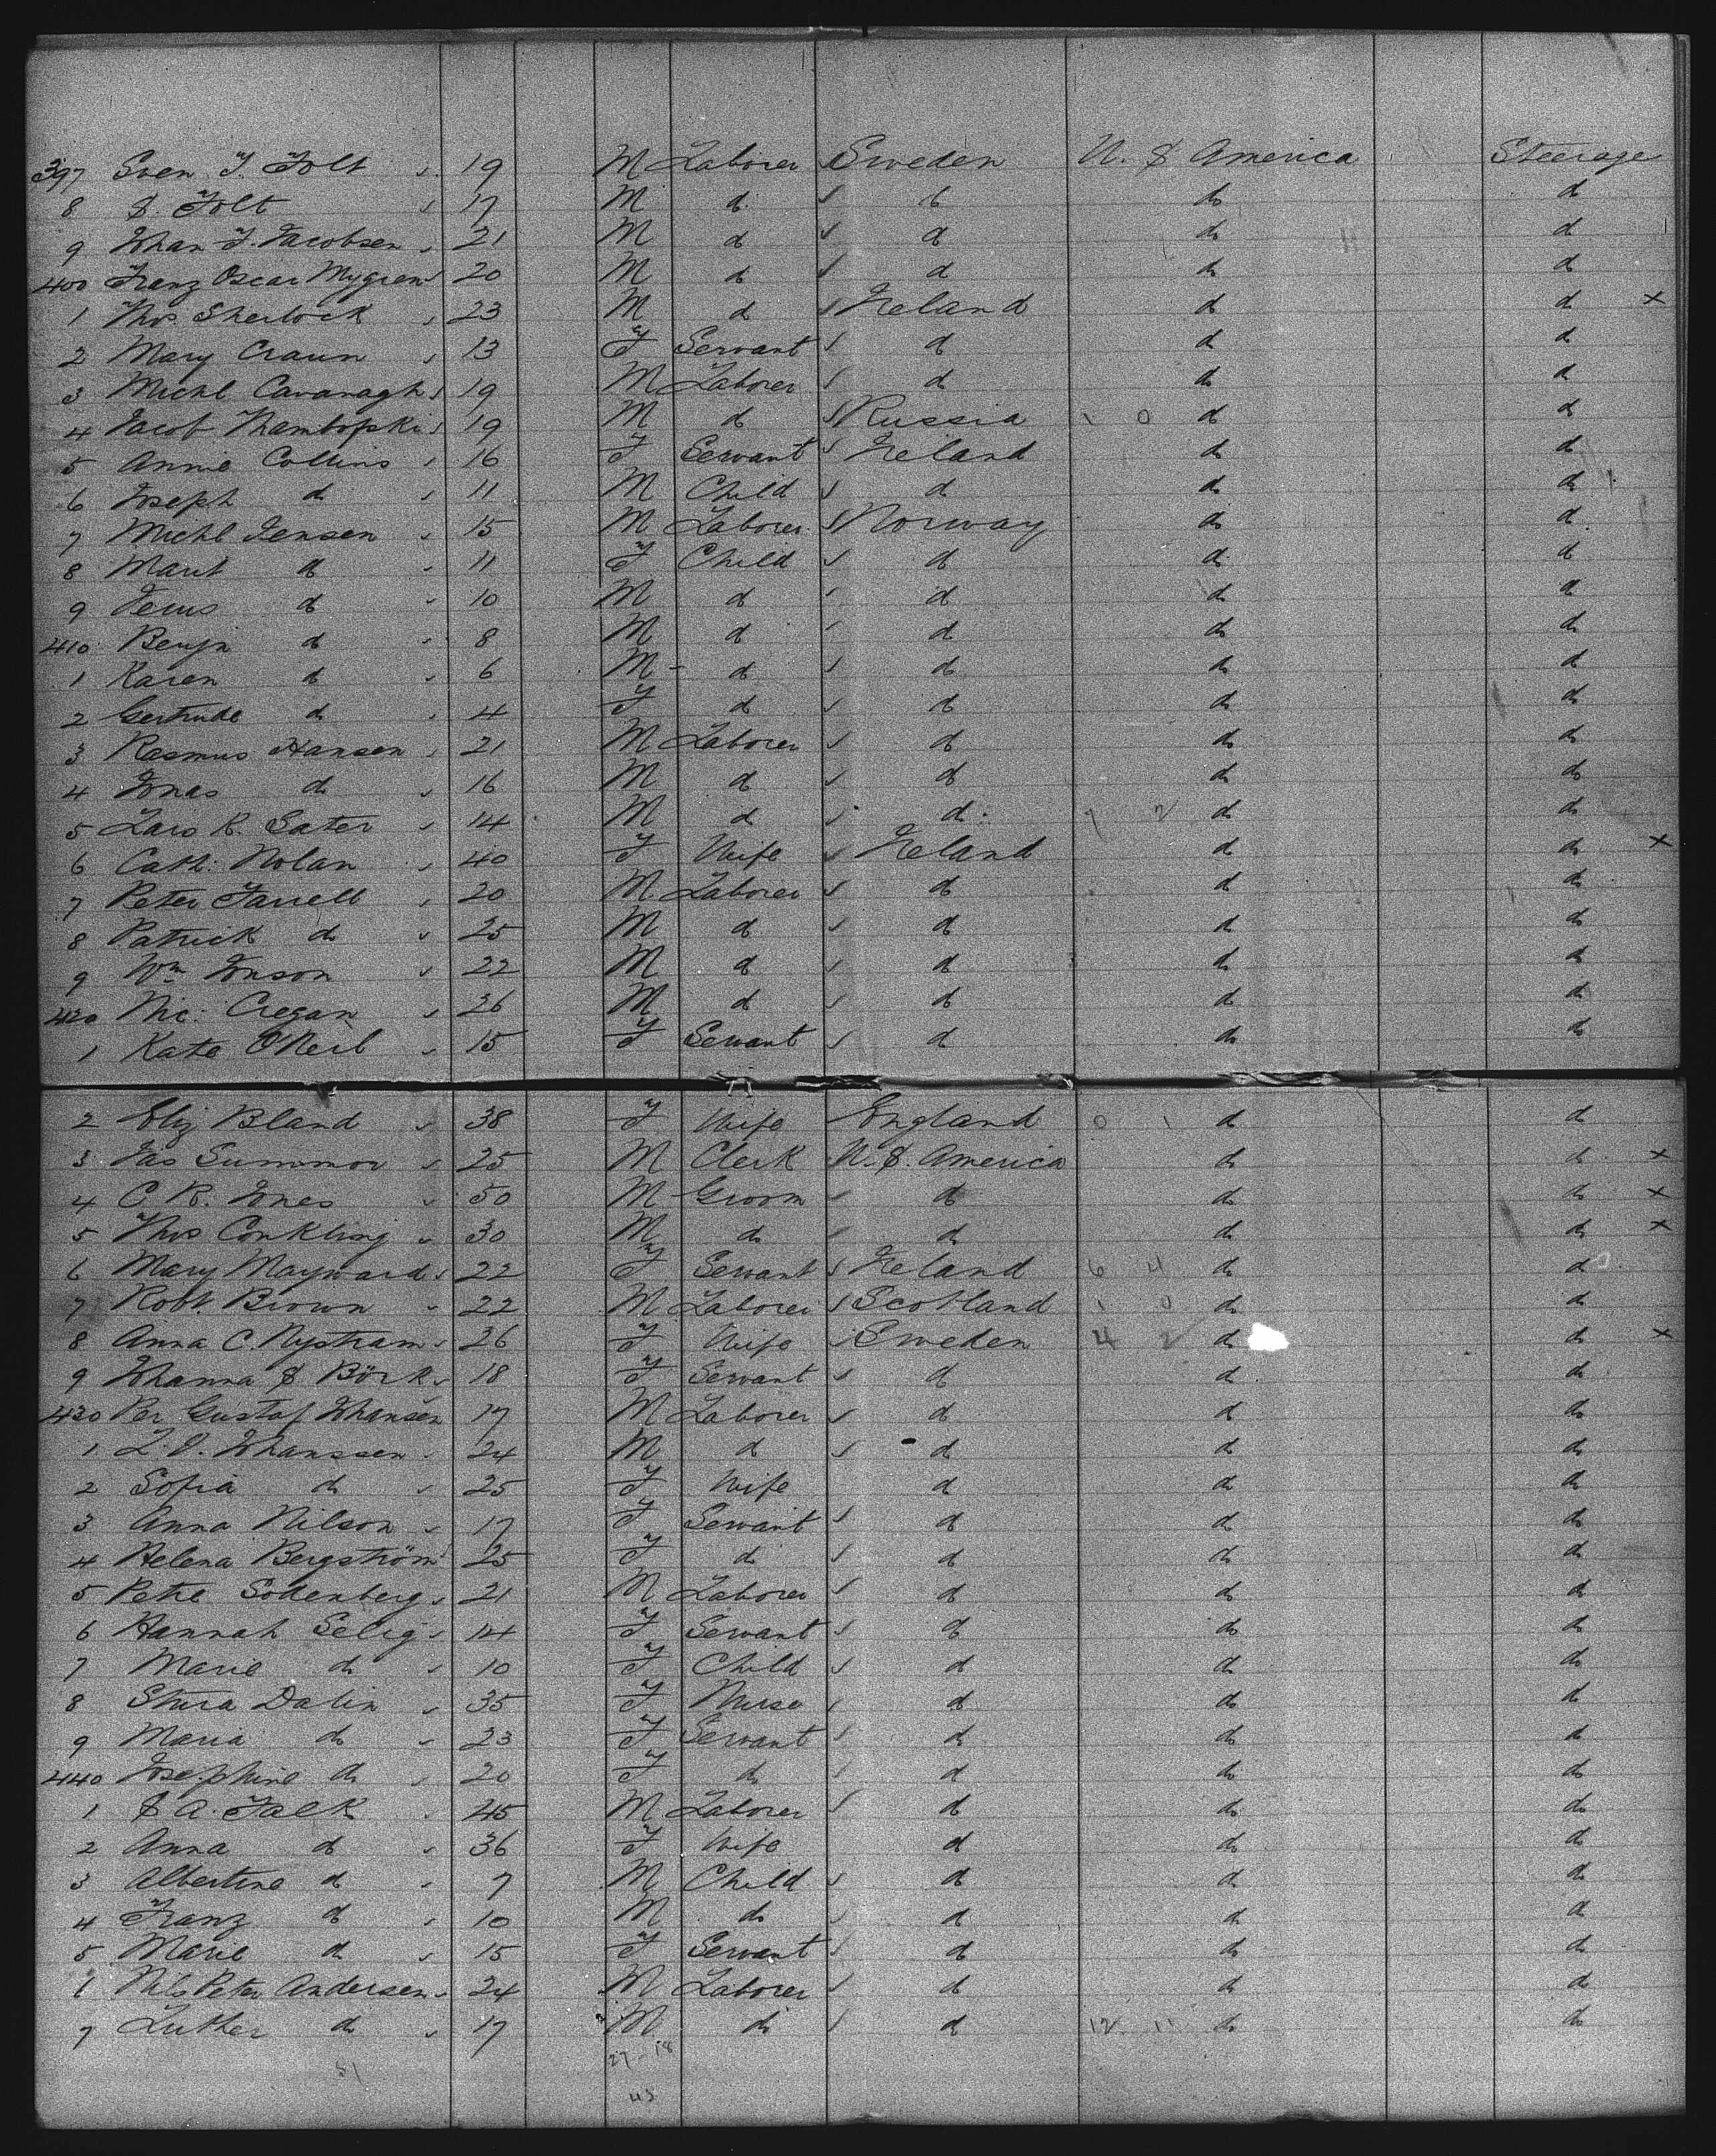 397 Sven J. Folt 19 M Laborer Sweden U. S America Steerage
8 S. Folt 17 M do do do do
9 Johan F. Jacobsen 21 M do do do do
400 Franz Oscar Mygren 20 M do do do do
1 Thos. Sherlock 23 M do Ireland do do x
2 Mary Craun 13 F Servant do do do
3 Michl Cavanagh 19 M Laborer do do do
4 Jacob 19 M do Russia 1 0 do do
5 Annie Collins 16 F Servant Ireland do do
6 Joseph do 11 M Child do do do
7 Michl Jensen 15 M Laborer Norway do do
8 Marit do 11 F Child do do do
9 Jens do 10 M do do do do
410 Benjn do 8 M do do do do
1 Karen do 6 M do do do do
2 Gertrude do 4 F do do do do
3 Rasmus Hansen 21 M Laborer do do do
4 Jonas do 16 M do do do do
5 Lars R. Sater 14 M do do 7 2 do do
6 Cath: Nolan 40 F Wife Ireland do do x
7 Peter Farrell 20 M Laborer do do do
8 Patrick do 25 M do do do do
9 Wm Jonson 22 M do do do do
420 Nic: Cregan 26 M do do do do
1 Kate O'Neil 15 F Servant do do do
2 Eliz Bland 38 F Wife England 0 1 do do
3 Jas Summor 25 M Clerk U. S. America do do x
4 C R. Jones 50 M Groom do do do x
5 Thos Conkling 30 M do do do do x
6 Mary Mayward 22 F Servant Ireland 6 4 do do
7 Robt. Brown 22 M Laborer Scotland 1 0 do do
8 Anna C. Nystram 26 F Wife Sweden 4 2 do do x
9 Johanna S Börk 18 F Servant do do do
430 Per Gustaf Johansen 17 M Laborer do do do
1 L. J. Johanssen 24 M do do do do
2 Sofia do 25 F Wife do do do
3 Anna Nilson 17 F Servant do do do
4 Helena Bergström 25 F do do do do
5 Petre Sodenberg 21 M Laborer do do do
6 Hannah Selig 14 F Servant do do do
7 Marie do 10 F Child do do do
8 Stura Dalin 35 F Nurse do do do
9 Maria do 23 F Servant do do do
440 Josephine do 20 F do do do do
1 S A. Falk 45 M Laborer do do do
2 Anna do 36 F Wife do do do
3 Albertine do 7 M Child do do do
4 Franz do 10 M do do do do
5 Marie do 15 F Servant do do do
6 Nils Peter Andersen 24 M Laborer do do do
7 Luther do 17 M do do 12 11 do do
51 27-18
45